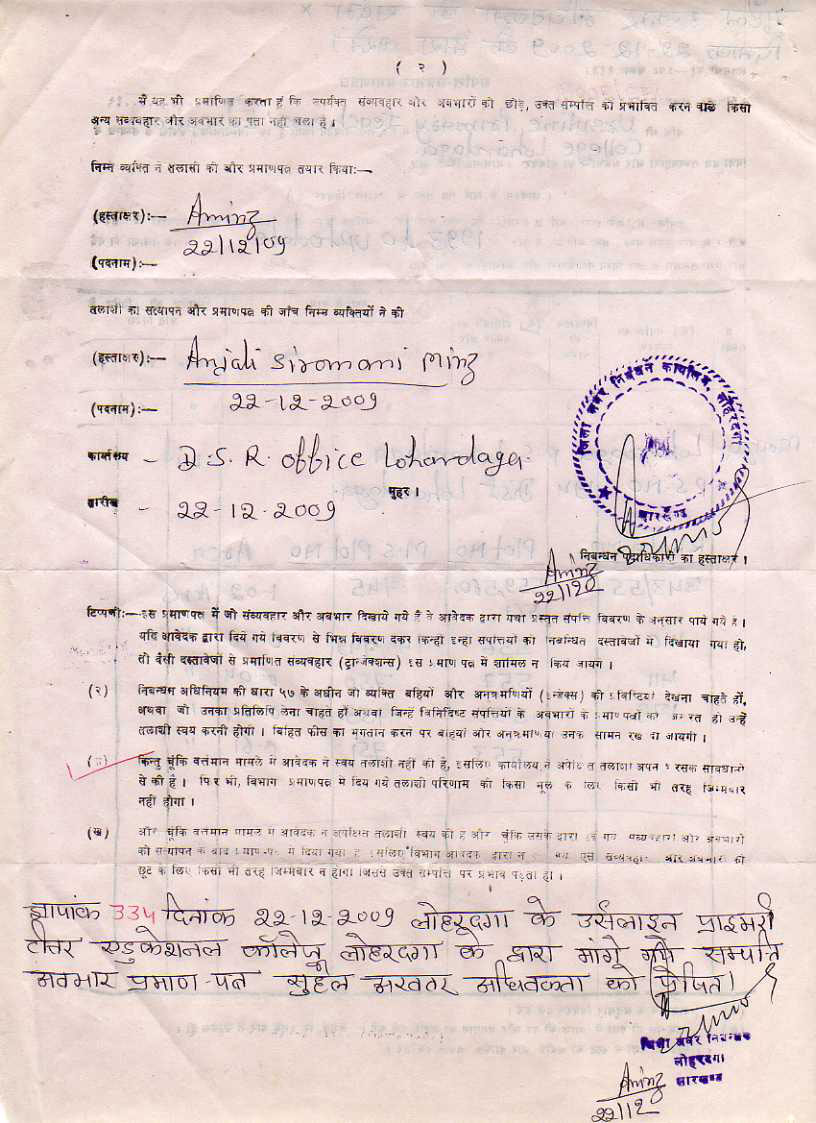 ( २ )
मैं यह भी प्रमाणित करता हूं कि उपर्युक्त संव्यवहार और अवभारों को छोड़, उक्त सम्पत्ति को प्रभावित करने वाले किसी
अन्य संव्यवहार और अवभार का पता नहीं चला है ।
निम्न व्यक्ति ने तलाशी की और प्रमाणपत्र तयार किया:—
(हस्ताक्षर):— Aminz
22/12/09
(पदनाम):—
तलाशी का सत्यापन और प्रमाणपत्र की जाँच निम्न व्यक्तियों ने की
(हस्ताक्षर):— Anjali Siromani Minz
(पदनाम):— 22-12-2009
कार्यालय - D.S.R. office Lohardaga.
मुहर ।
तारीख - 22-12-2009
जिला अवर निबंधन कार्यालय, लोहरदगा
झारखण्ड
निबन्धन पदाधिकारी का हस्ताक्षर ।
Aminz
22/12
टिप्पणी:—इस प्रमाणपत्र में जो संव्यवहार और अवभार दिखाये गये हैं वे आवेदक द्वारा यथा प्रस्तुत संपत्ति विवरण के अनुसार पाये गये हैं ।
यदि आवेदक द्वारा दिये गये विवरण से भिन्न विवरण देकर किन्हीं इन्हीं संपत्तियों को निबन्धित दस्तावेजों में दिखाया गया हो,
तो वैसी दस्तावेजों से प्रमाणित संव्यवहार (ट्रान्जेक्शन्स) इस प्रमाण पत्र में शामिल न किये जायेंगे ।
(२) निबन्धन अधिनियम की धारा ५७ के अधीन जो व्यक्ति बहियों और अनुक्रमणियों (इन्डेक्स) की प्रविष्टियां देखना चाहते हों,
अथवा जो उनका प्रतिलिपि लेना चाहते हों अथवा जिन्हें विनिर्दिष्ट संपत्तियों के अवभारों के प्रमाण पत्रों की जरूरत हो उन्हें
तलाशी स्वयं करनी होगी । विहित फीस का भुगतान करने पर बहियां और अनुक्रमणियां उनके सामने रख दी जायेंगी ।
किन्तु चूंकि वर्तमान मामले में आवेदक ने स्वयं तलाशी नहीं की है, इसलिए कार्यालय ने अपेक्षित तलाशी अपने भरसक सावधानी
से की है । फिर भी, विभाग प्रमाणपत्र में दिये गये तलाशी परिणाम की किसी भूल के लिए किसी भी तरह जिम्मेवार
नहीं होगा ।
(ख) और चूंकि वर्तमान मामले में आवेदक ने अपेक्षित तलाशी स्वयं की है और चूंकि उसके द्वारा संव्यवहारों और अवभारों
को सत्यापन के बाद प्रमाण-पत्र में दिया गया है इसलिए विभाग आवेदक द्वारा न ऐसे संव्यवहार और अवभार की
छूट के लिए किसी भी तरह जिम्मेवार न होगा जिससे उक्त सम्पत्ति पर प्रभाव पड़ता हो ।
ज्ञापांक 334 दिनांक 22-12-2009 लोहरदगा के उर्सलाइन प्राइमरी
टीचर एडुकेशनल कॉलेज लोहरदगा के द्वारा मांगे गये सम्पति
अवभार प्रमाण-पत्र सुहैल अख्तर अधिवक्ता को प्रेषित।
जिला अवर निबन्धक
लोहरदगा
झारखण्ड
Aminz
22/12